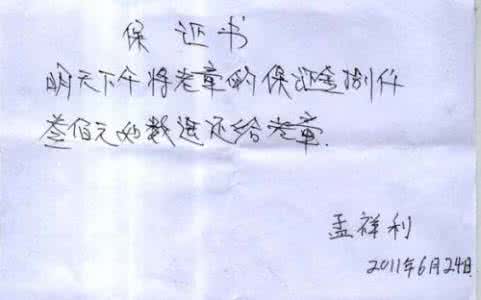 保证书
明天下午将老章的保证金捌仟
叁佰元如数退还给老章.
孟祥利
2011年6月24日